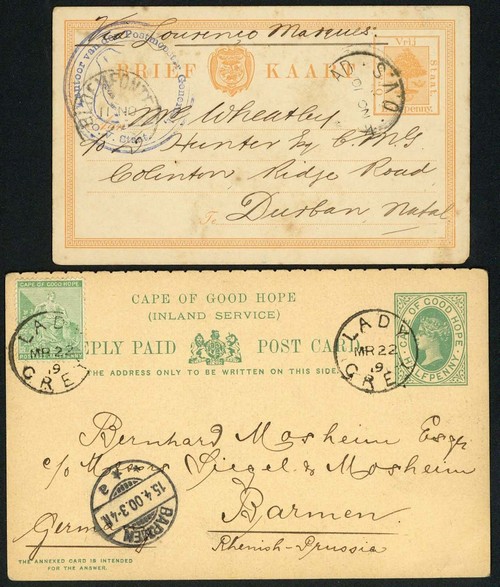 Via Lourenco Marques.
BRIEF KAART
Vrij
Staat
Mr Wheatley.
c/o Hunter Esq C.M.G
Colinton, Ridge Road
To Durban Natal
CAPE OF GOOD HOPE
CAPE OF GOOD HOPE
(INLAND SERVICE)
REPLY PAID POST CARD
THE ADDRESS ONLY TO BE WRITTEN ON THIS SIDE
CAPE OF GOOD HOPE
HALFPENNY
LADY
MR 22
GREY
LADY
MR 22
GREY
Bernhard Mosheim Esqr
c/o Messrs Siegel & Mosheim
Barmen
Germany
Rhenish-Prussia
BARMEN
15.4.00.3-4N
a
THE ANNEXED CARD IS INTENDED
FOR THE ANSWER.